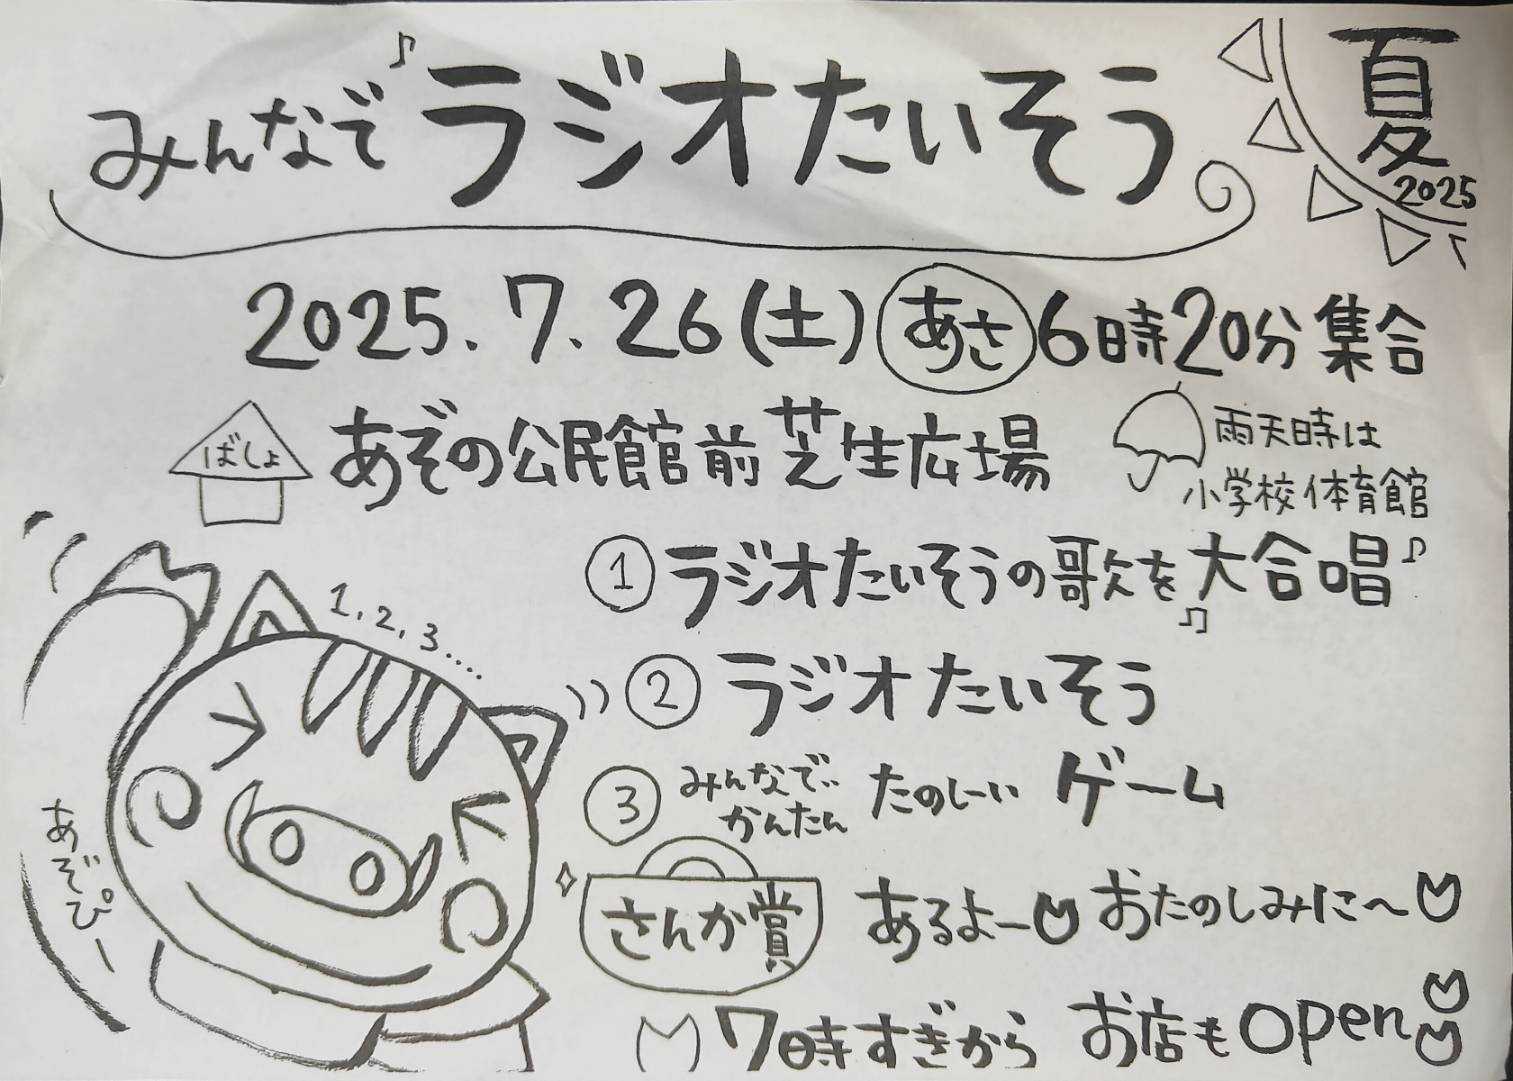 みんなでラジオたいそう
夏
2025
2025.7.26(土)あさ6時20分集合
ばしょ
あぞの公民館前芝生広場
雨天時は
小学校体育館
①ラジオたいそうの歌を大合唱
1,2,3....
②ラジオたいそう
③みんなで
かんたん
たのしーいゲーム
あぞぴー
さんか賞あるよー おたのしみに〜
7時すぎからお店もopen